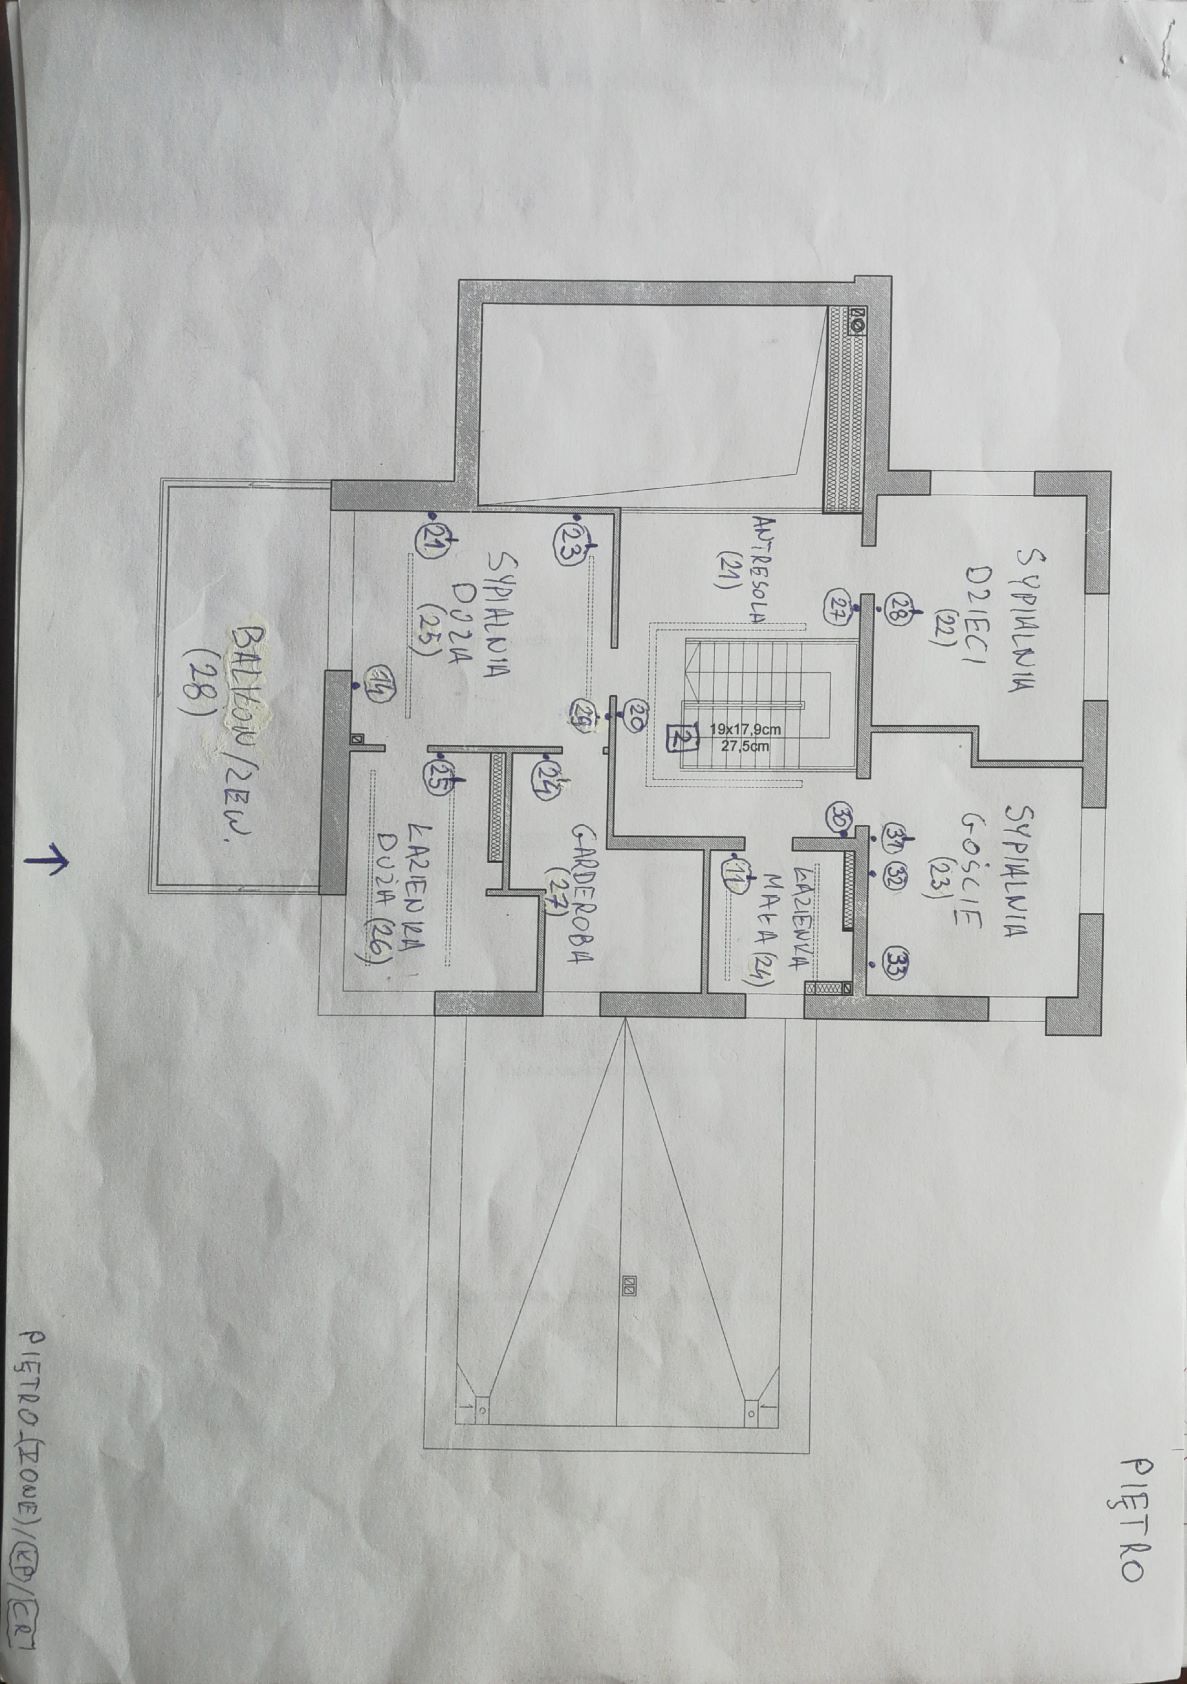 PIĘTRO
SYPIALNIA
DZIECI
(22)
SYPIALNIA
GOŚCIE
(23)
28
31 32 33
27
30
ŁAZIENKA
MAŁA (24)
11
ANTRESOLA
(21)
19x17,9cm
27,5cm
2
20
29
23
24
GARDEROBA
(27)
SYPIALNIA
DUŻA
(25)
21
25
14
ŁAZIENKA
DUŻA (26)
BALKON/ZEW.
(28)
PIĘTRO (ZONE)/KP/CR